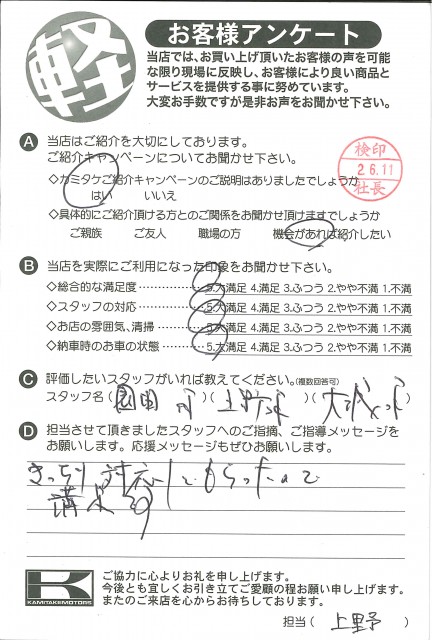 軽
お客様アンケート
当店では、お買い上げ頂いたお客様の声を可能
な限り現場に反映し、お客様により良い商品と
サービスを提供する事に努めています。
大変お手数ですが是非お声をお聞かせ下さい。
A 当店はご紹介を大切にしております。
ご紹介キャンペーンについてお聞かせ下さい。
検印
26.11
社長
◇カミタケご紹介キャンペーンのご説明はありましたでしょうか
はい いいえ
◇具体的にご紹介頂ける方とのご関係をお聞かせ頂けますでしょうか
ご親族 ご友人 職場の方 機会があれば紹介したい
B 当店を実際にご利用になった印象をお聞かせ下さい。
◇総合的な満足度………5.大満足 4.満足 3.ふつう 2.やや不満 1.不満
◇スタッフの対応………5.大満足 4.満足 3.ふつう 2.やや不満 1.不満
◇お店の雰囲気、清掃………5.大満足 4.満足 3.ふつう 2.やや不満 1.不満
◇納車時のお車の状態………5.大満足 4.満足 3.ふつう 2.やや不満 1.不満
C 評価したいスタッフがいれば教えてください。(複数回答可)
スタッフ名( )( 上野 )( )
D 担当させて頂きましたスタッフへのご指摘、ご指導メッセージを
お願いします。応援メッセージもぜひお願いします。
きっちり対応してもらったので
満足
K
KAMITAKE MOTORS
ご協力に心よりお礼を申し上げます。
今後とも宜しくお引き立てご愛顧の程お願い申し上げます。
またのご来店を心からお待ちしております。
担当( 上野 )